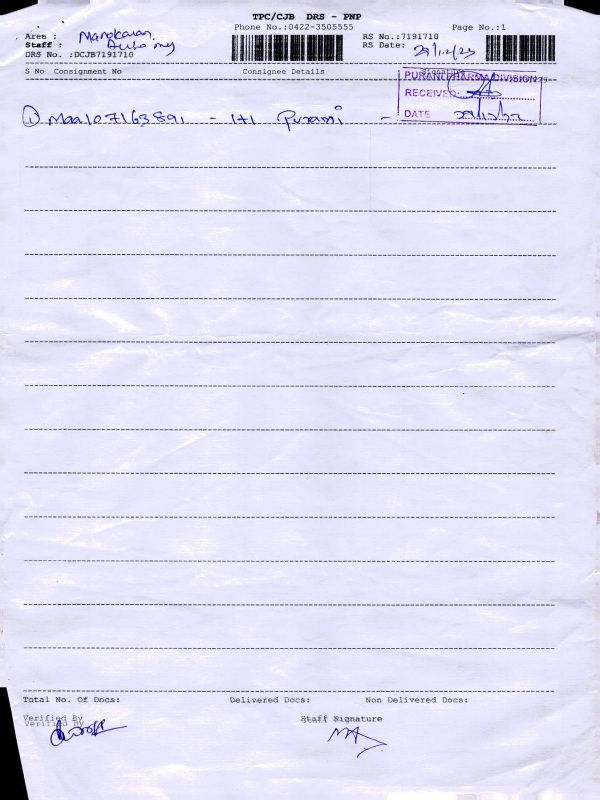 TPC/CJB DRS - PNP
Phone No.:0422-3505555 Page No.:1
Area :
Staff :
DRS No. :DCJB7191710
RS No.:7191710
RS Date: 29/12/23
S No Consignment No Consignee Details Signature
PURANI PHARMA DIVISION
RECEIVED:
DATE
① Maa107163891 - 171 Purani -
Total No. Of Docs: Delivered Docs: Non Delivered Docs:
Verified By Staff Signature
Verified By